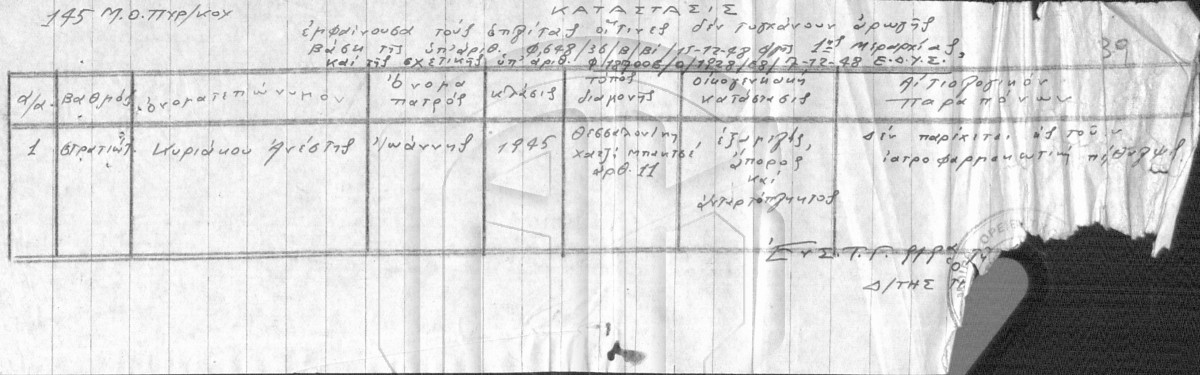 145 Μ.Ο.ΠΥΡ/ΚΟΥ
ΚΑΤΑΣΤΑΣΙΣ
ἐμφαίνουσα τούς ὁπλίτας οἵτινες δέν τυγχάνουν ἀρωγῆς
βάσει της ὑπ' ἀριθ. Φ.648/36/Β/ΒΙ/15-12-48 Δ/γῆς 1ης Μεραρχίας,
καί τῆς σχετικῆς ὑπ' ἀριθ. /0/1828/68/7-12-48 Ε.Ο.Υ.Σ.
39
α/α βαθμός ὀνοματεπώνυμον ὄνομα πατρός κλάσις τόπος διαμονής οἰκογενειακή κατάστασις Αἰτιολογικόν παραπόνων
1 στρατιώτ. Κυριάκου Ἀνέστης Ἰωάννης 1945 Θεσσαλονίκη Χατζῆ Μπαξτσέ ἀρθ. 11 ἐξαμελής, ἄπορος καί ἀνταρτόπληκτος Δέν παρέχεται εἰς τούτον ἰατροφαρμακευτική περίθαλψις
Ἐν Σ.Τ.Γ.
Δ/ΤΗΣ